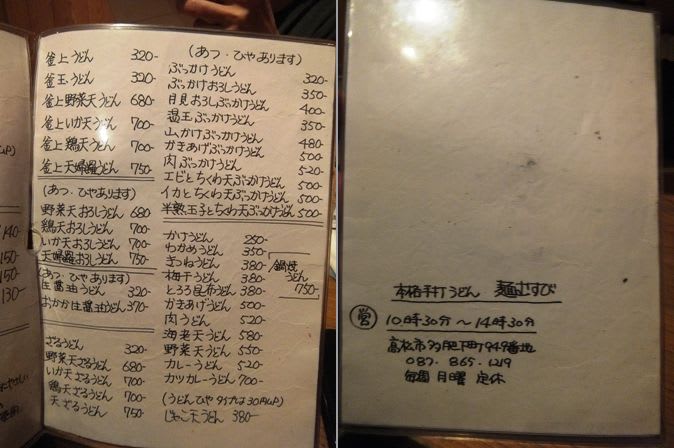 釜上うどん 320-
釜玉うどん 320-
釜上野菜天うどん 680-
釜上いか天うどん 700-
釜上鶏天うどん 700-
釜上天婦羅うどん 750-
(あつ・ひやあります)
野菜天おろしうどん 680
鶏天おろしうどん 700-
いか天おろしうどん 700-
天婦羅おろしうどん 750-
(あつ・ひやあります)
生醤油うどん 320-
おかか生醤油うどん 370-
ざるうどん 320-
野菜天ざるうどん 680-
いか天ざるうどん 700-
鶏天ざるうどん 700-
天ざるうどん 750-
(あつ・ひやあります)
ぶっかけうどん 320-
ぶっかけおろしうどん 350-
月見おろしぶっかけうどん 400-
温玉ぶっかけうどん 350-
山かけぶっかけうどん 480-
かきあげぶっかけうどん 500-
肉ぶっかけうどん 520-
エビとちくわ天ぶっかけうどん 500-
イカとちくわ天ぶっかけうどん 500-
半熟玉子とちくわ天ぶっかけうどん 500-
かけうどん 250-
わかめうどん 350-
きつねうどん 380-
梅干うどん 380-
とろろ昆布うどん 380-
かきあげうどん 500-
肉うどん 520-
海老天うどん 580-
野菜天うどん 550-
カレーうどん 520-
カツカレーうどん 700-
(うどんひや タイプは30円UP)
じゃこ天うどん 380-
鍋焼
うどん
750-
140-
150-
150-
130-
本格手打うどん 麺むすび
営 10時30分～14時30分
高松市多肥下町949番地
087-865-1219
毎週 月曜 定休